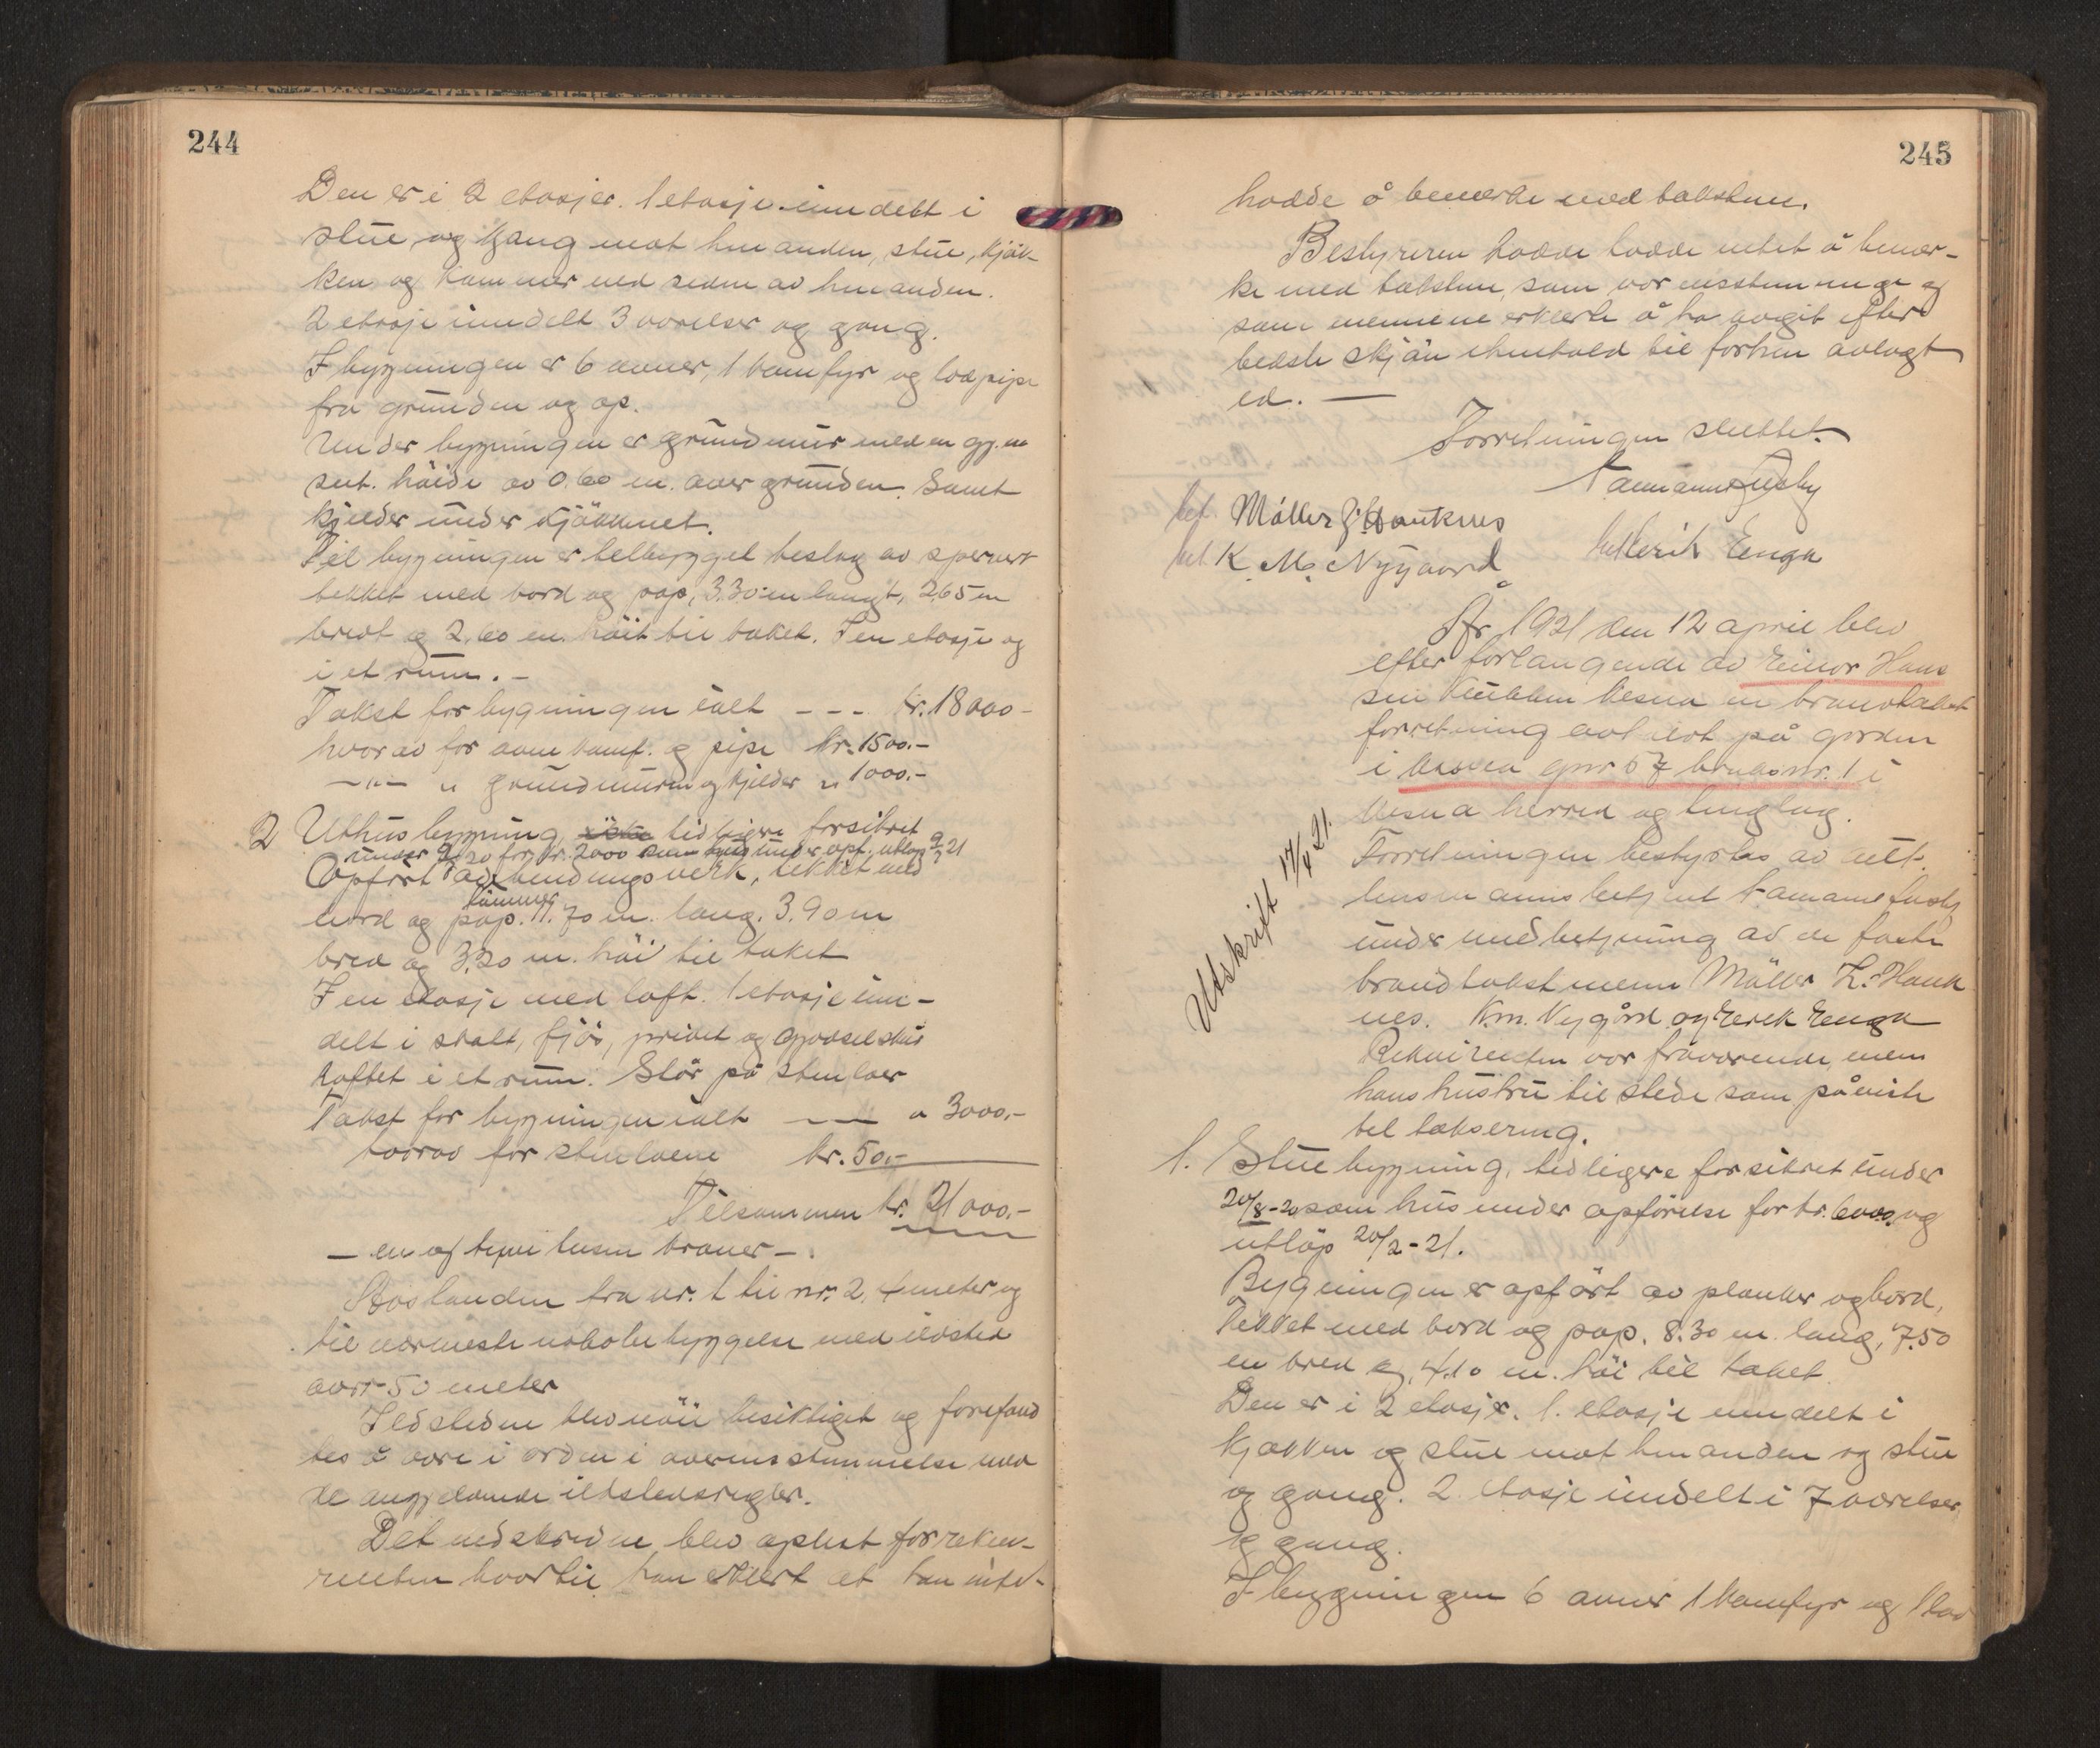 244
Den er i 2 etasjer. 1 etasje inndelt i
stue og gang mot hinanden, stue, kjøk-
ken og kammer ved siden av hinanden.
2 etasje inndelt 3 værelser og gang.
I bygningen er 6 ovner, 1 komfyr og 1 pipe
fra grunden og op.
Under bygningen er grundmur med en gj.m
snit. høide av 0.60 m. over grunden. Samt
kjelder under kjøkkenet.
Til bygningen er tilbygget beslag av sperverk
tekket med bord og pap, 3.30 m langt, 2.65 m
bredt og 2.60 m. høit til taket. I en etasje og
i et rum. -
Takst for bygningen ialt - - - kr. 18000-
hvorav for ovne komf. og pipe kr. 1500.-
-"- " grundmuren og kjelder " 1000.-
2 Uthusbygning tidligere forsikret
under for kr. 2000 under opf. utløp 9/3 21
Opført av bindingsverk, tekket med
bord og pap. 11.70 m. lang. 3.90 m
tømmer
bred og 3.20 m. høi til taket
I en etasje med loft. 1 etasje inn-
delt i stall, fjøs, privet og gjødselskur
Loftet i et rum. Står på stenlaer
Takst for bygningen ialt — " 3000.-
hvorav for stenlaene kr. 50.-
Tilsammen kr. 21000.-
- en og tyve tusen kroner -.
Avstanden fra nr. 1 til nr. 2, 4 meter og
til nærmeste nabobebyggelse med ildsted
over 50 meter
Ildstedene blev nøie besiktiget og forefand
tes å være i orden i overensstemmelse med
de angjeldende ildstedsregler.
Det nedskrevne blev oplest for rekvi-
renten hvortil han erklært at han intet
245
hadde å bemerke med taksten.
Bestyreren hadde hadde intet å bemer-
ke med taksten, som var enstemmige og
som mennene erklærte å ha avgit efter
bedste skjøn i henhold til forhen avlagt
ed. —
Forretningen sluttet.
Møller Z. Hauknes
K. M. Nygaard
Erik Enga
År 1921 den 12 april blev
efter forlangende av Einar Hans
sen Nesna en brandtakst
forretning avholdt på gården
i Nesna gnr 57 bruksnr. 1 i
Nesna herred og tinglag.
Forretningen bestyrtes av
lensmannsbetjent
under medbetjening av de faste
brandtakstmenn Møller Z. Hauk
nes. K.M. Nygård og Erik Enga
Rekvirenten var fraværende, men
hans hustru tilstede som påviste
til taksering.
Utskrift 17/4 21.
1. Stuebygning, tidligere forsikret under
20/8-20 som hus under opførelse for kr. 6000 og
utløp 20/2-21.
Bygningen er opført av planker og bord,
tekket med bord og pap. 8.30 m. lang, 7.50
m bred og 4.10 m. høi til taket.
Den er i 2 etasjer. 1. etasje inndelt i
kjøkken og stue mot hinanden og stue
og gang. 2. etasje inndelt i 7 værelser
og gang.
I bygningen 6 ovner 1 komfyr og 1